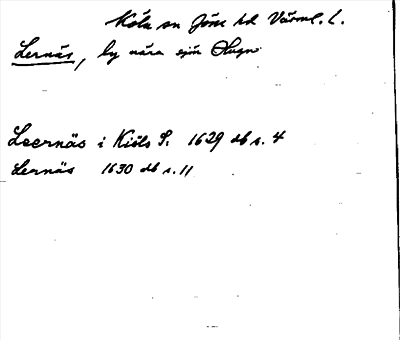 Köla sn Jösse hd Värml. l.
Lernäs, by nära sjön Ölugn
Leernäs i Kiöls S. 1629 db s. 4
Lernäs 1630 db s. 11